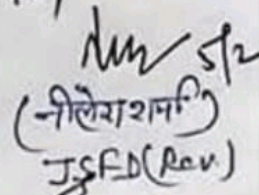 5/2
(नीलेश शर्मा)
JSFD(Rev.)